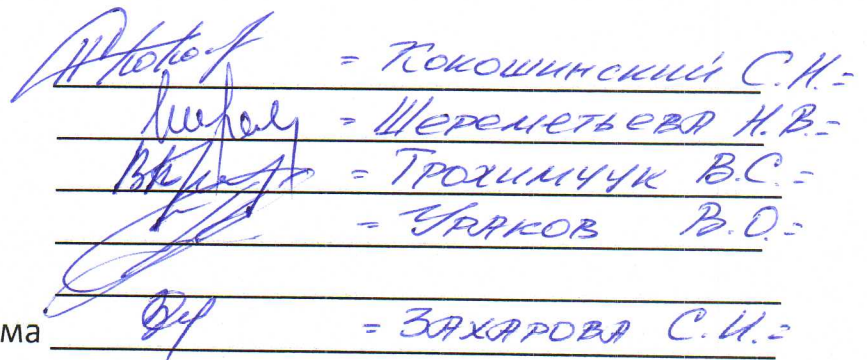 = Кокошинский С.Н.=
= Шереметьева Н.В.=
= Трохимчук В.С.=
= Ураков В.О.=
ма = Захарова С.И.=